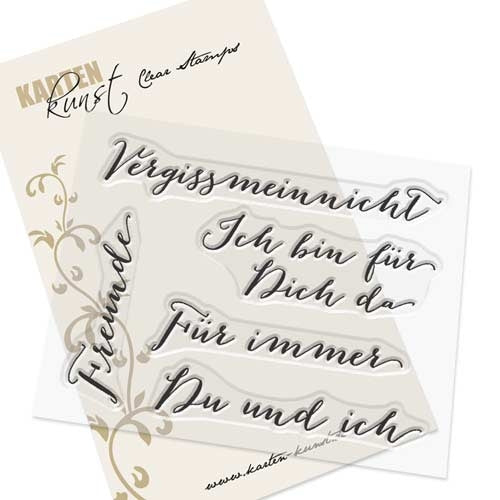 KARTEN
kunst Clear Stamps
Vergissmeinnicht
Ich bin für
Dich da
Freunde
Für immer
Du und ich
www.karten-kunst.